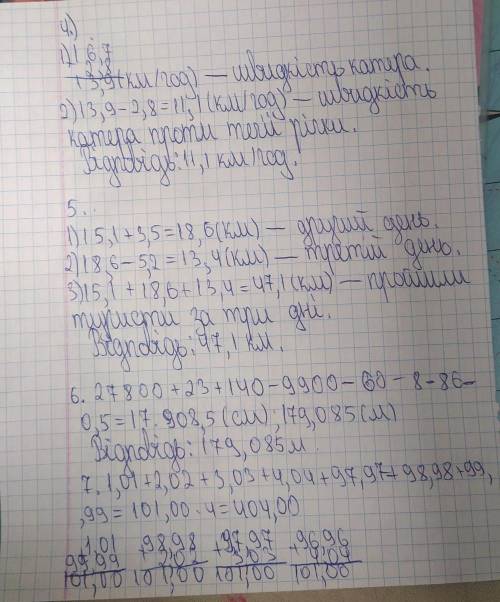 4.)
1) 16,7
2,8
13,9 (км/год) — швидкість катера.
2) 13,9-2,8=11,1 (км/год) — швидкість
катера проти течії річки.
Відповідь: 11,1 км/год.
5.
1) 15,1+3,5=18,6 (км) — другий день.
2) 18,6-5,2=13,4 (км) — третій день.
3) 15,1+18,6+13,4=47,1 (км) — пройшли
туристи за три дні.
Відповідь: 47,1 км.
6. 27800+23+140-9900-60-8-86-
0,5=17.908,5 (см); 179,085 (м)
Відповідь: 179,085м
7. 1,01+2,02+3,03+4,04+97,97+98,98+99,
,99=101,00·4=404,00
1,01 +98,98 +97,97 +96,96
99,99 2,02 3,03 4,04
101,00 101,00 101,00 101,00